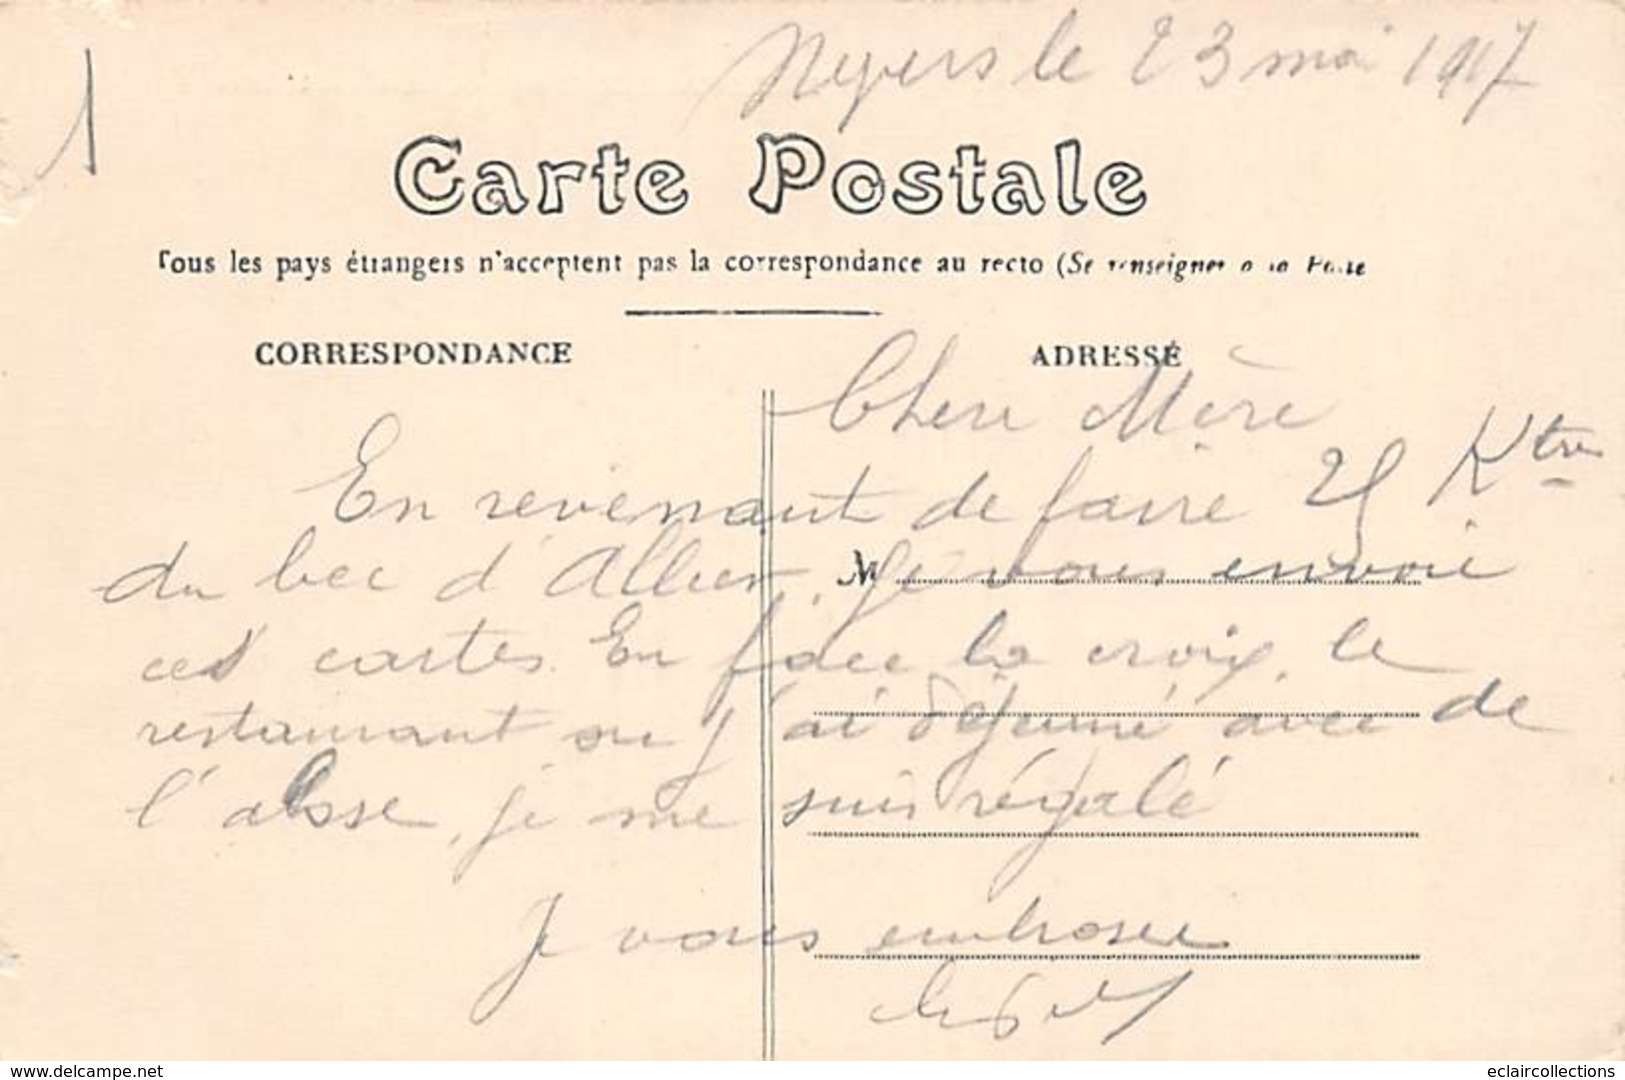 1
le 23 mai 1917
Carte Postale
Tous les pays étrangers n'acceptent pas la correspondance au recto (Se renseigner à la Poste
CORRESPONDANCE
ADRESSE
Chere Mère
En revenant de faire 25 Ktres
du bec d'Allier, je vous envoie
ces cartes. En face la croix, le
restaurant ou j'ai déjeuné avec de
l'alose, je me suis régalé
Je vous embrasse
M
www.delcampe.net
eclaircollections